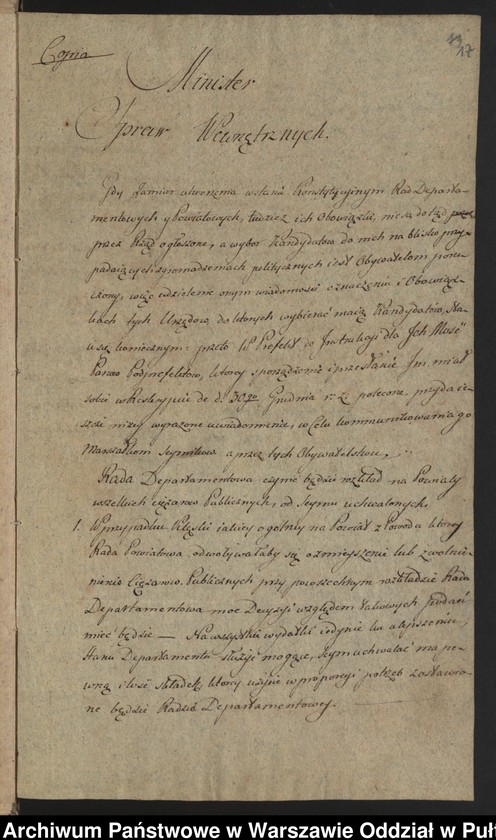 Copia
17
Minister
Spraw Wewnętrznych.
Gdy Zamiar utworzenia wstanie Konstytucyinym Rad Departa-
mentowych y Powiatowych, tudzież ich Obowiązki, nie są dotąd
przez Rząd ogłoszone, a wybor Kandydatow do nich na blisko przy-
padaiących zgromadzeniach politycznych iest Obywatelom poru-
czony, więc udzielenie onym wiadomości o znaczeniu i Obowiąz-
kach tych Urzędow, do ktorych wybierać maią Kandydatów, sta-
ie się koniecznym: przeto W Prefekt do Instrukcyi dla Ich Mość
Panow Podprefektow, ktorey sporządzenie i przesłanie Jm miał
sobie w Reskrypcie de d. 30go Grudnia r. z. polecone, przyda ie-
szcze niżey wyrażone uwiadomienie, w Celu kommunikowania go
Marszałkom Seymików a przez tych Obywatelom.
Rada Departamentowa czynić będzie rozkład na Powiaty
wszelkich ciężarow Publicznych, od Seymu uchwalonych,
1. W przypadku Klęski iakiey ogolney na Powiat z Powodu ktorey
Rada Powiatowa odwoływałaby się o zmnieyszenie lub zwolni-
nienie Ciężarow Publicznych przy powszechnym rozkładzie Rada
Departamentowa moc Decyzyi względem takowych
mieć będzie — Na wszystkie wydatki iedynie ku ulepszeniu
Stanu Departamentu służyć mogące, Seym uchwalać ma pe-
wną ilość składek, ktorey użycie w proporcyi potrzeb zostawio-
ne będzie Radzie Departamentowey.
Archiwum Państwowe w Warszawie Oddział w Puł